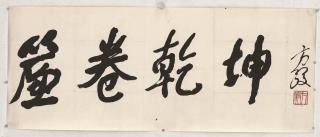 簾卷乾坤
方毅